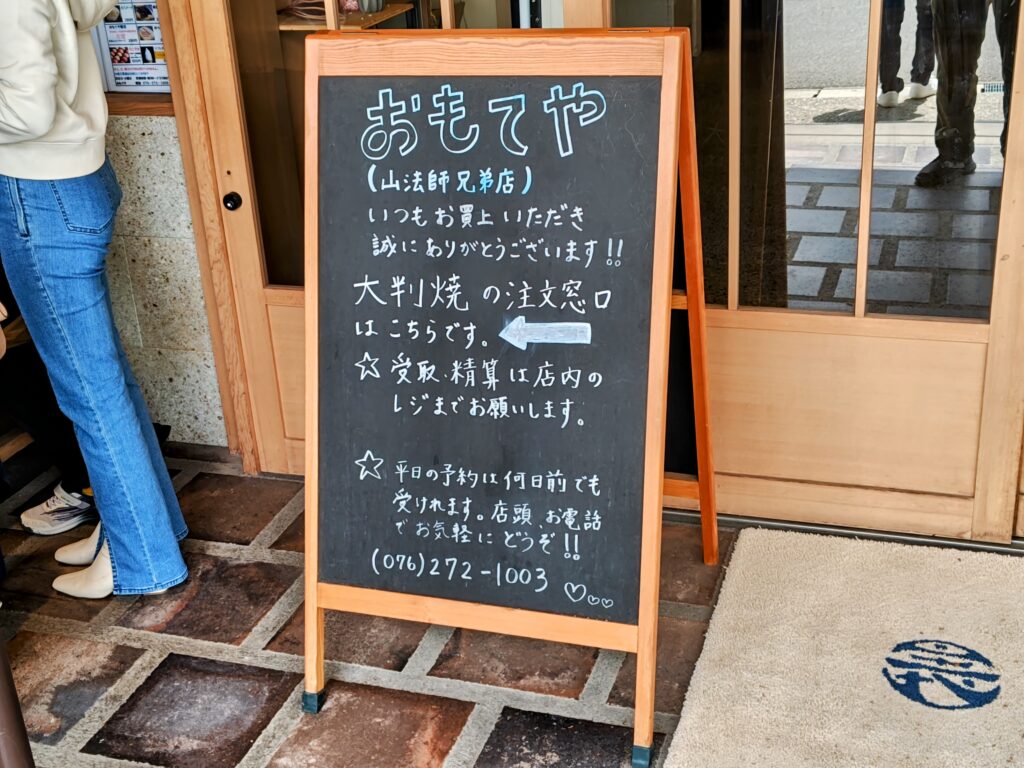 おもてや
(山法師兄弟店)
いつもお買上いただき
誠にありがとうございます!!
大判焼の注文窓口
はこちらです。
☆ 受取、精算は店内の
レジまでお願いします。
☆ 平日の予約は何日前でも
受けれます。店頭、お電話
でお気軽にどうぞ!!
(076)272-1003